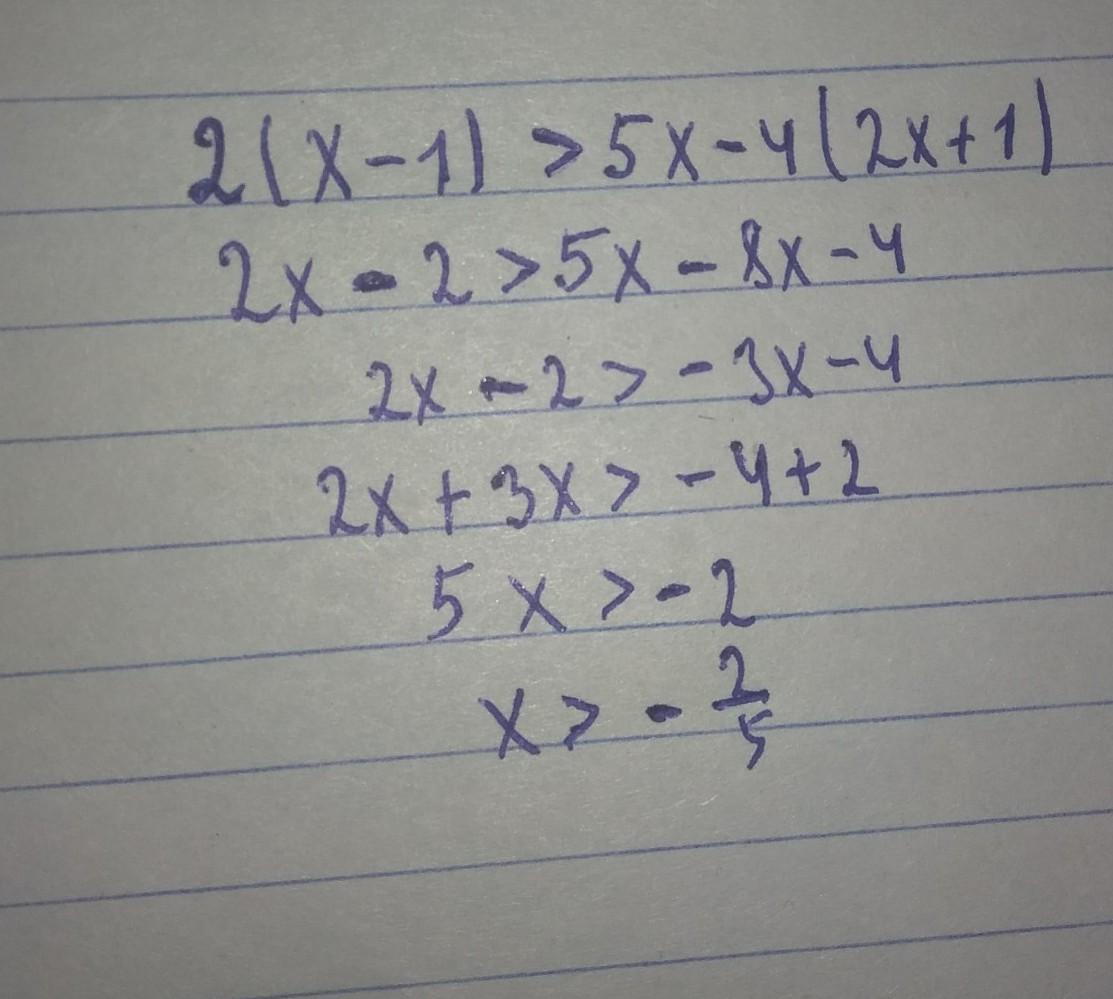 2(x-1) > 5x-4(2x+1)
2x - 2 > 5x - 8x - 4
2x - 2 > - 3x - 4
2x + 3x > - 4 + 2
5x > - 2
x > - 2/5